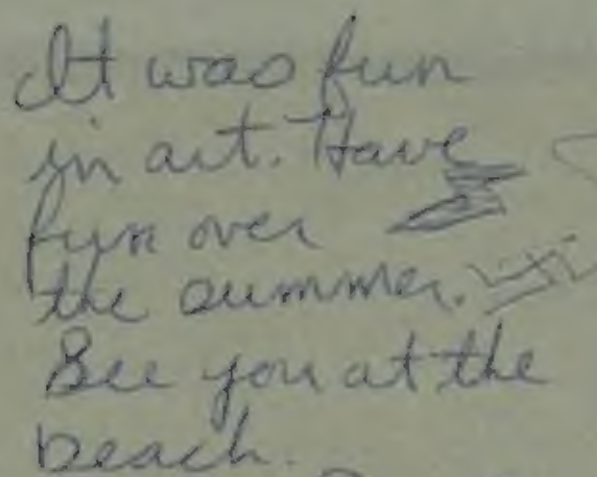 It was fun
in art. Have
fun over
the summer.
See you at the
beach.